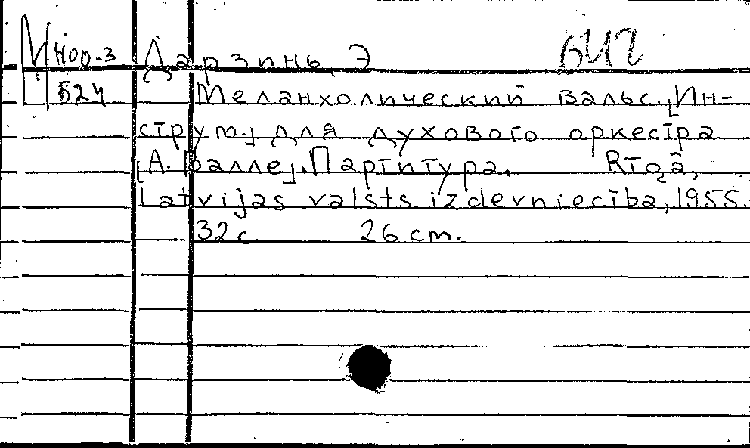 Иног-3 Дарзинь, Э
Ц 524 Меланхолический вальс. [Ин-
струм.] для духового оркестра
[А. Валле]. Партитура. Rīgā,
Latvijas valsts izdevniecība, 1955.
32 с 26 cm.